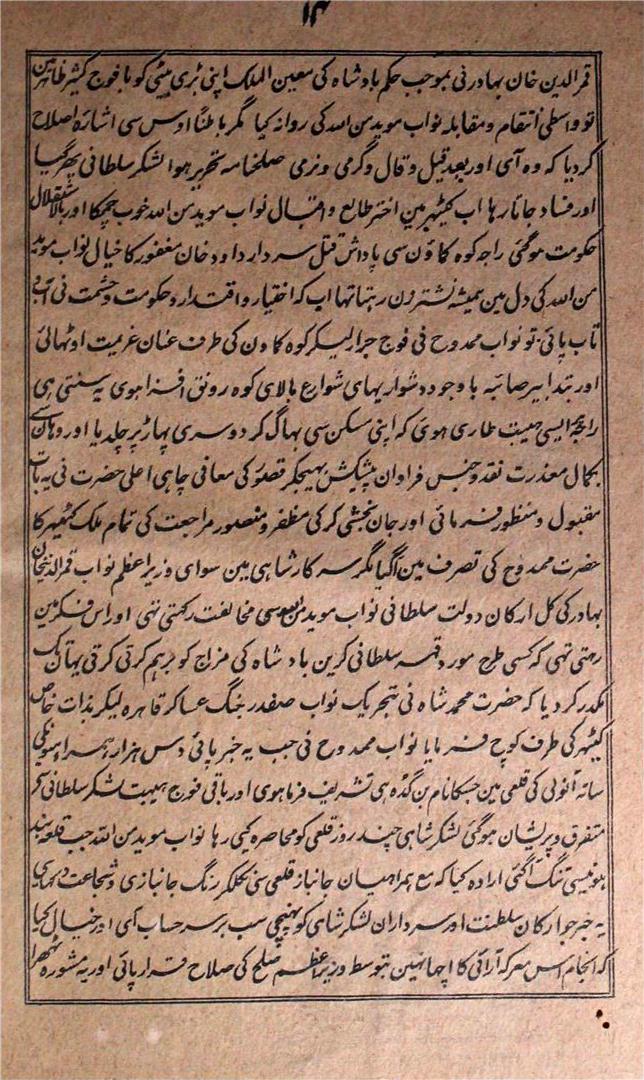 ۱۴
قمرالدین خان بہادر نی بموجب حکم بادشاہ کی معین الملک اپنی بڑی بیٹی کو با فوج کثیر ظاہر مین
تو واسطی انتقام و مقابلہ نواب موید من اللہ کی روانہ کیا مگر باطناً اوس سی اشارہ اصلاح
کر دیا کہ وہ آی اور بعد قیل و قال و گرمی و نرمی صلحنامہ تحریر ہوا لشکر سلطانی پھر گیا
اور فساد جاتا رہا اب کٹیہر مین اختر طالع و اقبال نواب موید من اللہ خوب چمکا اور بالاستقلال
حکومت ہوگئی راجہ کوہ کماؤن سی پاداش قتل سردار داود خان مغفور کا خیال نواب موید
من اللہ کی دل مین ہمیشہ نشتر زن رہتا تہا اب کہ اختیار و اقتدار و حکومت و حشمت نی آب و
تاب پائی تو نواب ممدوح نی فوج جرار لیکر کوہ کماون کی طرف عنان عزیمت اوٹھائی
اور بتدابیر صائبہ باوجود دشواریہای شوارع بالای کوہ رونق افزا ہوی یہ سنتی ہی
راجہ پر ایسی ہیبت طاری ہوی کہ اپنی مسکن سی بہاگ کر دوسری پہاڑ پر چلدیا اور وہان سی
بکمال معذرت نقد و جنس فراوان پیشکش بہیجکر قصور کی معافی چاہی اعلی حضرت نی یہ بات
مقبول و منظور فرمائی اور جان بخشی کر کی مظفر و منصور مراجعت کی تمام ملک کٹیہر کا
حضرت ممدوح کی تصرف مین آگیا مگر سرکار شاہی مین سوای وزیر اعظم نواب قمرالدینخان
بہادر کی کل ارکان دولت سلطانی نواب موید من اللہ سی مخالفت رکہتی تہی اور اس فکر مین
رہتی تہی کہ کسی طرح مورد قہر سلطانی کرین بادشاہ کی مزاج کو برہم کرتی کرتی یہانتک
مکدر کر دیا کہ حضرت محمد شاہ نی بتحریک نواب صفدر جنگ عساکر قاہرہ لیکر بذات خاص
کٹیہر کی طرف کوچ فرمایا نواب ممدوح نی جب یہ خبر پائی دس ہزار ہمراہیونکی
ساتہ آنولی کی قلعی مین جسکا نام بن گڈہ ہی تشریف فرما ہوی اور باقی فوج ہیبت لشکر سلطانی سی
متفرق و پریشان ہوگئی لشکر شاہی چند روز قلعی کو محاصرہ کیی رہا نواب موید من اللہ جب قلعہ بند
ہونیسی تنگ آگئی ارادہ کیا کہ مع ہمراہیان جانباز قلعی سی نکلکر رنگ جانبازی و شجاعت
یہ خبر جو ارکان سلطنت اور سرداران لشکر شاہی کو پہنچی سب برسر حساب آی اور خیال کیا
کہ انجام اس معرکہ آرائی کا اچہا نہین بتوسط وزیر اعظم صلح کی صلاح قرار پائی اور یہ مشورہ ٹھرا